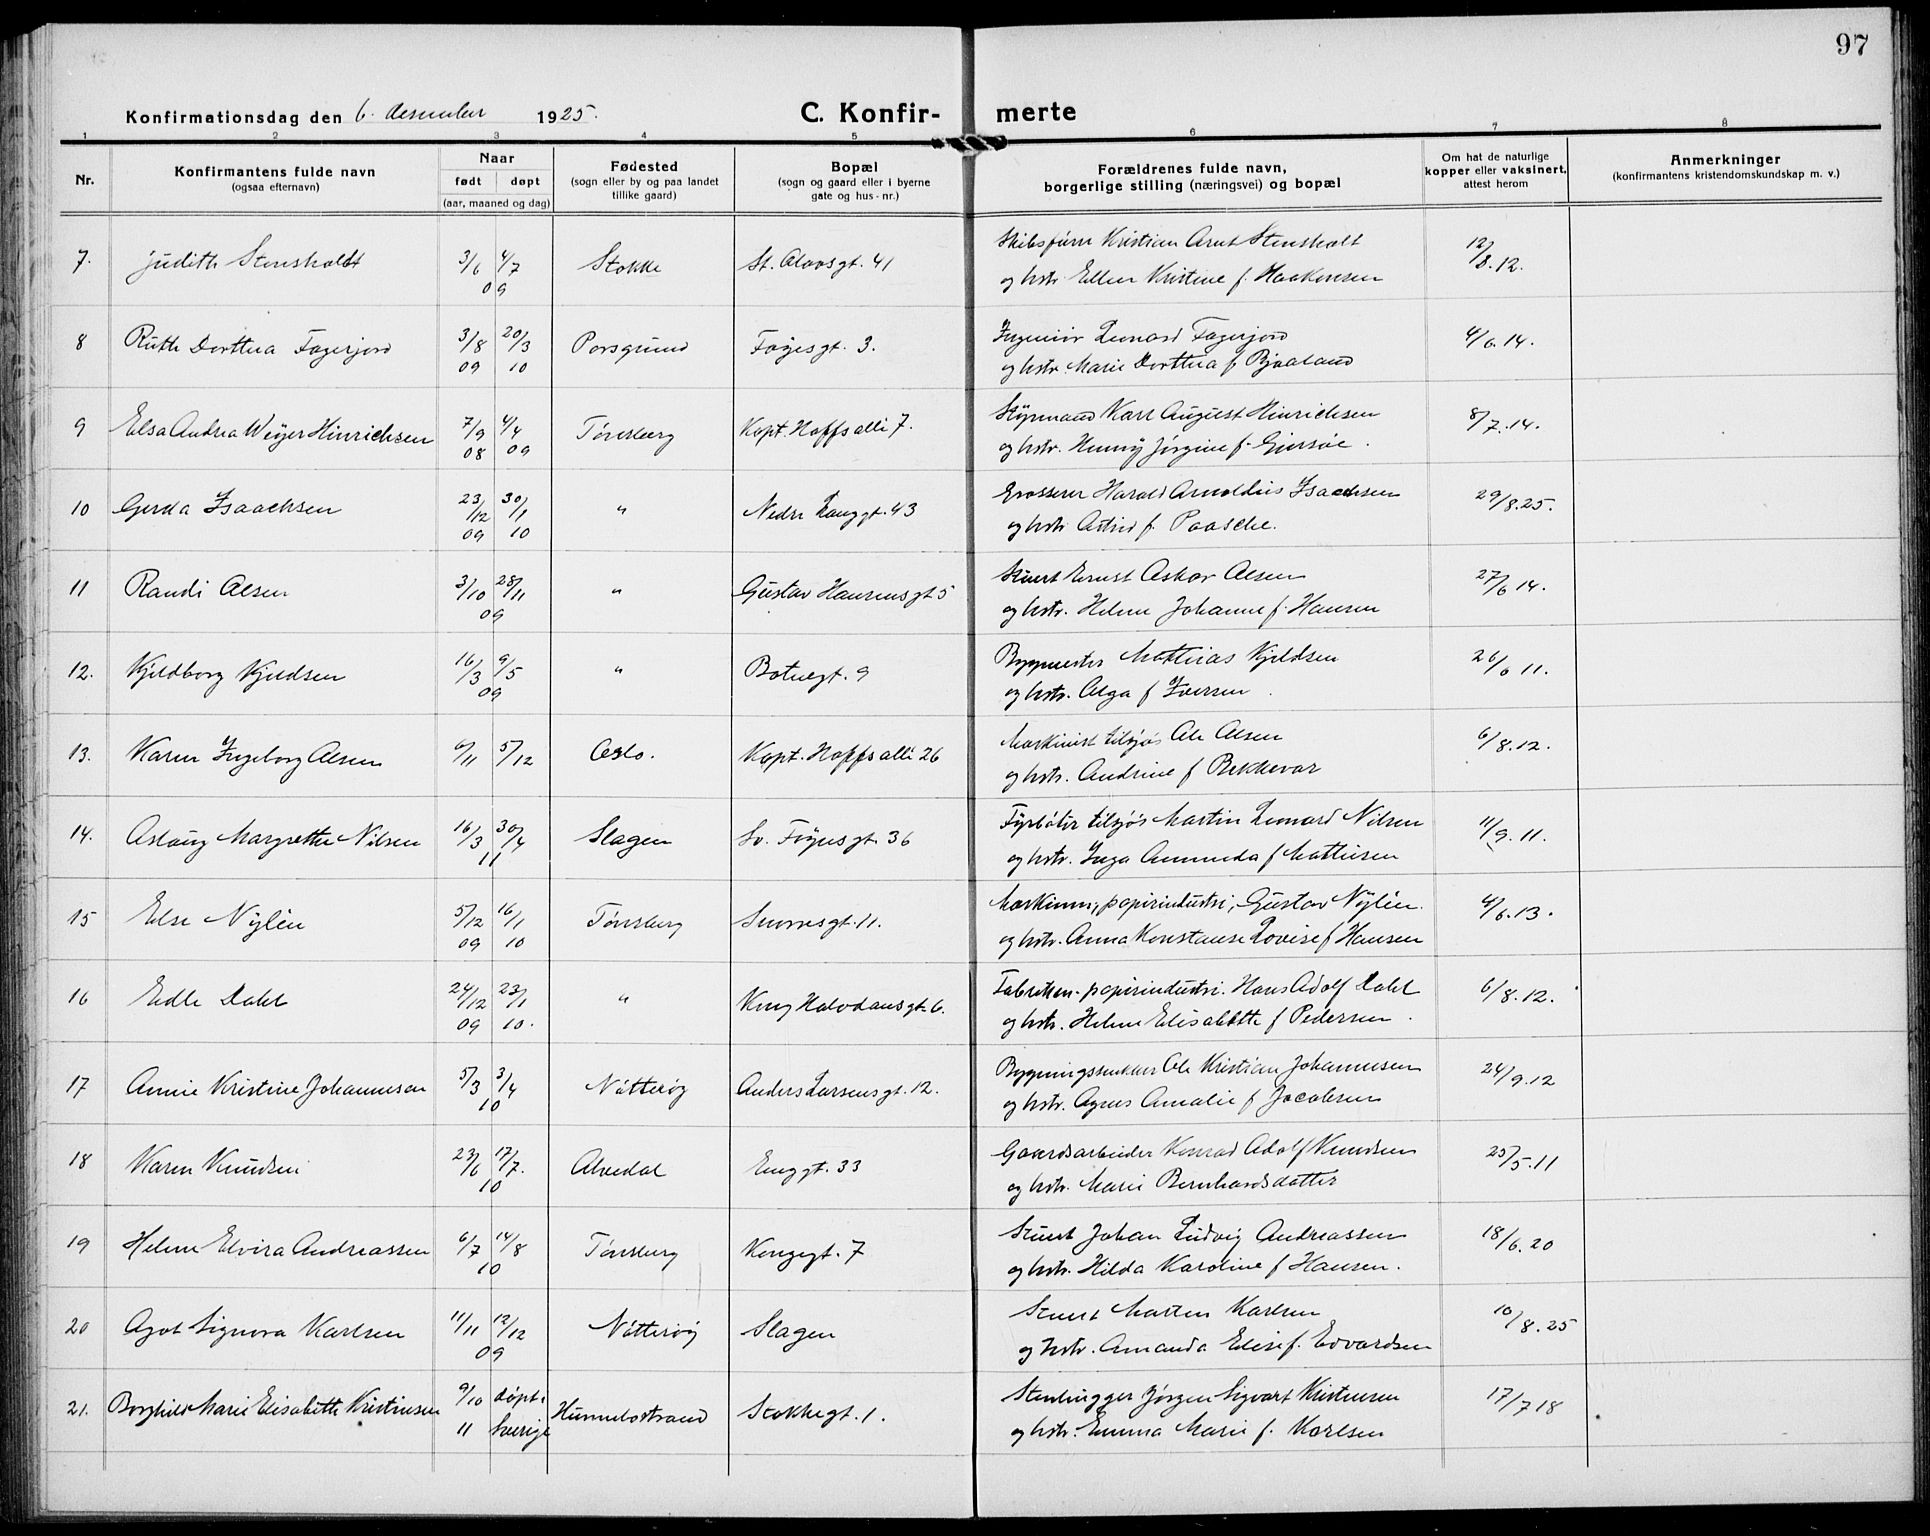 97
Konfirmationsdag den 6. desember 1925.
C. Konfir- merte
1 2 3 4 5 6 7 8
Nr.
Konfirmantens fulde navn
(ogsaa efternavn)
Naar
født døpt
(aar, maaned og dag)
Fødested
(sogn eller by og paa landet
tillike gaard)
Bopæl
(sogn og gaard eller i byerne
gate og hus-nr.)
Forældrenes fulde navn,
borgerlige stilling (næringsvei) og bopæl
Om hat de naturlige
kopper eller vaksinert,
attest herom
Anmerkninger
(konfirmantens kristendomskundskap m. v.)
7. Judith Stensholdt 3/6 4/7 Stokke St. Olavsgt. 41 Skibsfører Kristian Arnt Stensholt 12/8.12.
09 og hstr. Ellen Kristine f. Haakensen
8 Ruth Dorthea Fagerjord 3/8 20/3 Porsgrund Føyesgt. 3. Ingeniør Leonard Fagerjord 4/6.14.
09 10 og hstr. Marie Dorthea f Bjaaland
9 Elsa Andrea Weyer Hinrichsen 7/9 4/4 Tønsberg Kapt. Hoffs alle 7. Styrmand Karl August Hinrichsen 8/7.14.
08 09 og hstr. Henny Jørgine f. Gjersøe.
10 Gerda Isaachsen 23/12 30/1 " Nedre Langgt. 43 Grosserer Harald Arnoldus Isaachsen 29/8.25.
09 10 og hstr Astrid f. Paasche.
11 Randi Olsen 3/10 28/11 " Gustav Hansens gt 5 Stuert Ernst Oskar Olsen 27/6 14.
09 og hstr. Helene Johanne f. Hansen
12. Kjeldborg Kjeldsen 16/3 9/5 " Botnegt. 9 Byggmester Mathias Kjeldsen 26/6 11.
09 og hstr. Olga f Iversen.
13. Karen Ingeborg Olsen 6/11 5/12 Oslo. Kapt. Hoffs alle 26 Maskinist tilsjøs Ole Olsen 6/8.12.
og hstr. Andrine f Rekkevar
14. Aslaug Margrethe Nilsen 16/3 30/4 Slagen Sv. Føynsgt. 36 Fyrbøter tilsjøs Martin Leonard Nilsen 11/9.11.
11 og hstr. Inga Ammunda f Mathisen
15 Else Nylén 5/12 16/1 Tønsberg Snorresgt. 11. Maskinm., papirindustri, Gustav Nylén. 4/6.13.
09 10 og hstr. Anna Konstanse Lovise f Hansen
16 Edle Dahl 24/12 23/1 " Kong Halvdans gt. 6. Fabrikkm. papirindustri. Hans Adolf Dahl 6/8.12.
09 10. og hstr. Helene Elisabeth f Pedersen.
17 Annie Kristine Johannesen 5/3 3/4 Nøtterøy Anders Larsens gt. 12. Bygningssnekker Ole Kristian Johannesen 24/9.12
10 og hstr. Agnes Amalie f Jacobsen
18 Karen Knudsen 23/6 17/7. Alvedal Enggt. 33 Gaardsarbeider Konrad Adolf Knudsen 25/5.11
10 og hstr. Marie Bernhardsdatter
19 Helene Elvira Andreassen 6/7 14/8 Tønsberg Kongegt. 7 Stuert Johan Ludvig Andreassen 18/6.20
10 og hstr. Hilda Karoline f Hansen.
20 Agot Signora Karlsen 11/11 12/12 Nøtterøy Slagen Stuert Marten Karlsen 10/8.25
09 og hstr. Amanda Elise f. Edvardsen
21. Borghild Marie Elisabeth Kristensen 9/10 døpt i Hunnebostrand Stokkegt. 1. Stenhugger Jørgen Sigvart Kristensen 17/7 18
11 Sverige og hstr. Emma Marie f. Karlsen